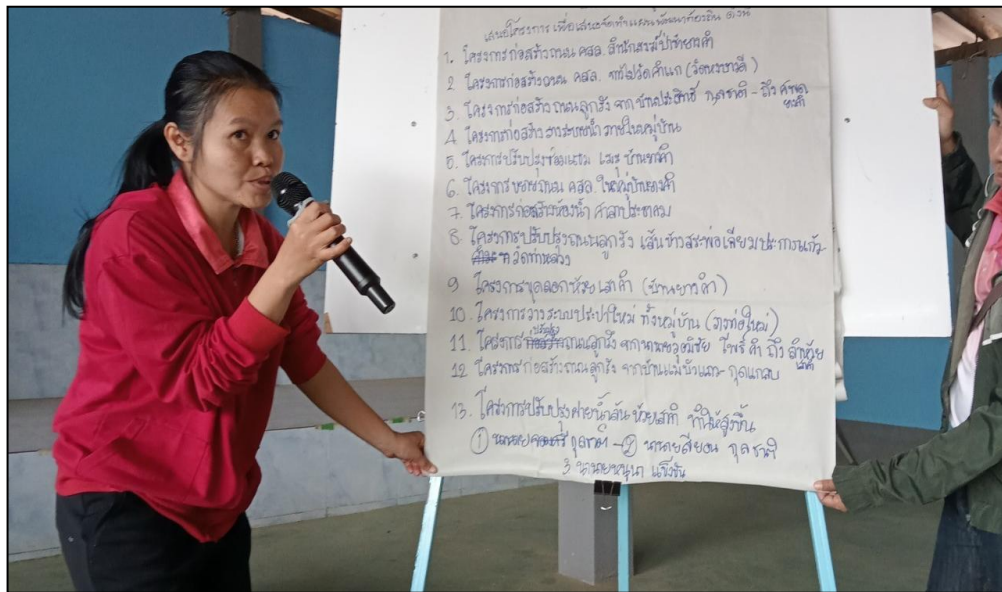 เสนอโครงการ เพื่อเสนอจัดทำแผนพัฒนาท้องถิ่น ดังนี้
1. โครงการก่อสร้างถนน คสล. สำนักสงฆ์ป่าช้ายางคำ
2 โครงการก่อสร้างถนน คสล. ทางไปวัดคำแก
3. โครงการก่อสร้างถนนลูกรัง จาก กุลชาติ - ถึง
ยางคำ
4. โครงการก่อสร้าง วางระบบน้ำ ภายในหมู่บ้าน
5. โครงการปรับปรุงซ่อมแซม เมรุ บ้านยางคำ
6. โครงการขยายถนน คสล. ในหมู่บ้านยางคำ
7. โครงการก่อสร้างห้องน้ำ ศาลาประชาคม
8. โครงการปรับปรุงถนนลูกรัง เส้นข้างสระพ่อเลียม
วัดท่าหลวง
9 โครงการขุดลอกห้วย เสาคำ (บ้านยางคำ)
10. โครงการวางระบบประปาใหม่ ทั้งหมู่บ้าน (วางท่อใหม่)
ปรับปรุง
11. โครงการก่อสร้างถนนลูกรัง จาก โพธิ์คำ ถึง ลำห้วย
เสาคำ
12. โครงการก่อสร้างถนนลูกรัง จากบ้านแม่บัวแถว - กุดแกลบ
13. โครงการปรับปรุงฝายน้ำล้น ห้วยเสาคำ ทำให้สูงขึ้น
① นานาย กุลชาติ - ② นานายสียอน กุลชาติ
3. นานายหนูนา แข็งขัน